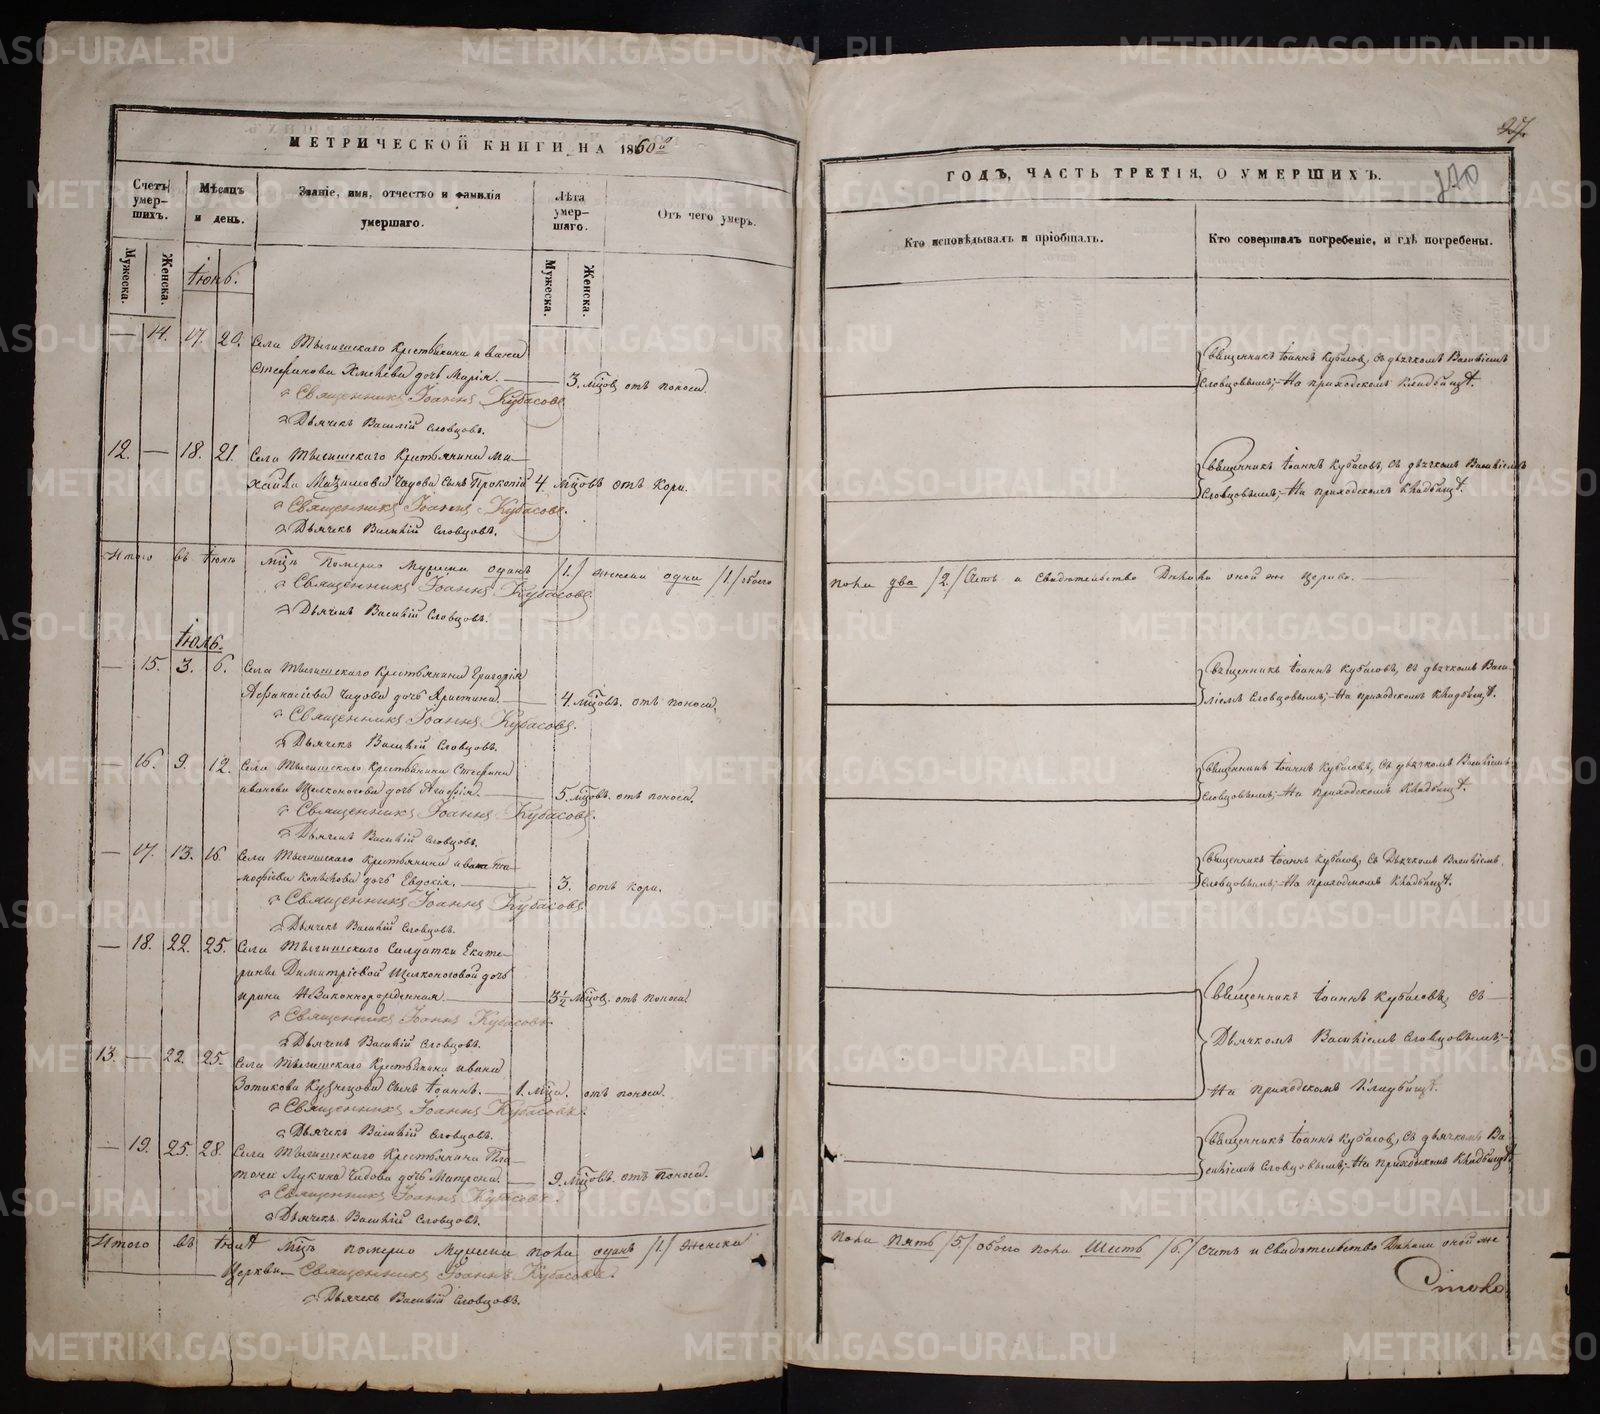 МЕТРИЧЕСКОЙ КНИГИ НА 1860й
Счетъ умерших.
Мѣсяцъ и день.
Званіе, имя, отчество и фамилія умершаго.
Лѣта умершаго.
Отъ чего умеръ.
Мужеска.
Женска.
Мужеска.
Женска.
Іюнь.
— 14. 17. 20. Села Тыгишскаго Крестьянина Ивана
Стефанова дочь Марія. — 3. мцов отъ поноса.
Священникъ Іоаннъ Кубасовъ
Дьячекъ Василій Словцовъ.
12. — 18. 21. Села Тыгишскаго Крестьянина Ми-
хаила Максимова Чадова Сынъ Прокопій 4. мцовъ отъ Кори.
Священникъ Іоаннъ Кубасовъ.
Дьячекъ Василій Словцовъ.
Итого въ Іюнѣ мцѣ Померло Мужеска одинъ /1./ женска одна /1./ обоего
Священникъ Іоаннъ Кубасовъ
Дьячекъ Василій Словцовъ.
Іюль.
— 15. 3. 6. Села Тыгишскаго Крестьянина Григорія
Афанасіева Чадова дочь Христина. — 4. мцовъ. отъ поноса.
Священникъ Іоаннъ Кубасовъ.
Дьячекъ Василій Словцовъ.
— 16. 9. 12. Села Тыгишскаго Крестьянина Стефана
Иванова Щелконогова дочь Агафія. — 5. мцовъ. отъ поноса.
Священникъ Іоаннъ Кубасовъ.
Дьячекъ Василій Словцовъ.
— 17. 13. 16. Села Тыгишскаго Крестьянина Ивана Ти-
мофіева дочь Евдокія. — 3. отъ кори.
Священникъ Іоаннъ Кубасовъ
Дьячекъ Василій Словцовъ.
— 18. 22. 25. Села Тыгишскаго Солдатки Екате-
рины Димитріевой Щелконоговой дочь
Ирина Незаконнорожденная — 3½ мцов. отъ поноса.
Священникъ Іоаннъ Кубасовъ
Дьячекъ Василій Словцовъ.
13. — 22. 25. Села Тыгишскаго Крестьянина Ивана
Зотикова Кузнецова Сынъ Іоаннъ. — 1. мца. отъ поноса.
Священникъ Іоаннъ Кубасовъ.
Дьячекъ Василій Словцовъ.
— 19. 25. 28. Села Тыгишскаго Крестьянина Пла-
тона Лукина Чадова дочь Матрона. — 9. мцовъ. отъ поноса.
Священникъ Іоаннъ Кубасовъ.
Дьячекъ Василій Словцовъ.
Итого въ Іюлѣ мцѣ померло Мужеска пола одинъ /1./ женска
Церкви — Священникъ Іоаннъ Кубасовъ.
Дьячекъ Василій Словцовъ.
27.
170
ГОДЪ, ЧАСТЬ ТРЕТІЯ, О УМЕРШИХЪ.
Кто исповѣдывалъ и пріобщалъ.
Кто совершалъ погребеніе, и гдѣ погребены.
Священникъ Іоаннъ Кубасовъ, съ дьячкомъ Василіемъ
Словцовымъ; На приходскомъ кладбищѣ.
Священникъ Іоаннъ Кубасовъ, съ дьячкомъ Василіемъ
Словцовымъ; На приходскомъ Кладбищѣ.
пола два /2./ Счетъ и Свидѣтельство оной же церкви.
Священникъ Іоаннъ Кубасовъ, съ дьячкомъ Васи-
ліемъ Словцовымъ; На приходскомъ Кладбищѣ.
Священникъ Іоаннъ Кубасовъ, съ дьячкомъ Василіемъ
Словцовымъ; На приходскомъ Кладбищѣ.
Священникъ Іоаннъ Кубасовъ, съ Дьячкомъ Василіемъ
Словцовымъ; На приходскомъ Кладбищѣ.
Священникъ Іоаннъ Кубасовъ, съ
Дьячкомъ Василіемъ Словцовымъ;
На приходскомъ Кладбищѣ.
Священникъ Іоаннъ Кубасовъ, съ дьячкомъ Ва-
силіемъ Словцовымъ; На приходскомъ Кладбищѣ.
пола пять /5./ обоего пола шесть /6./ счетъ и Свидѣтельство оной же
METRIKI.GASO-URAL.RU